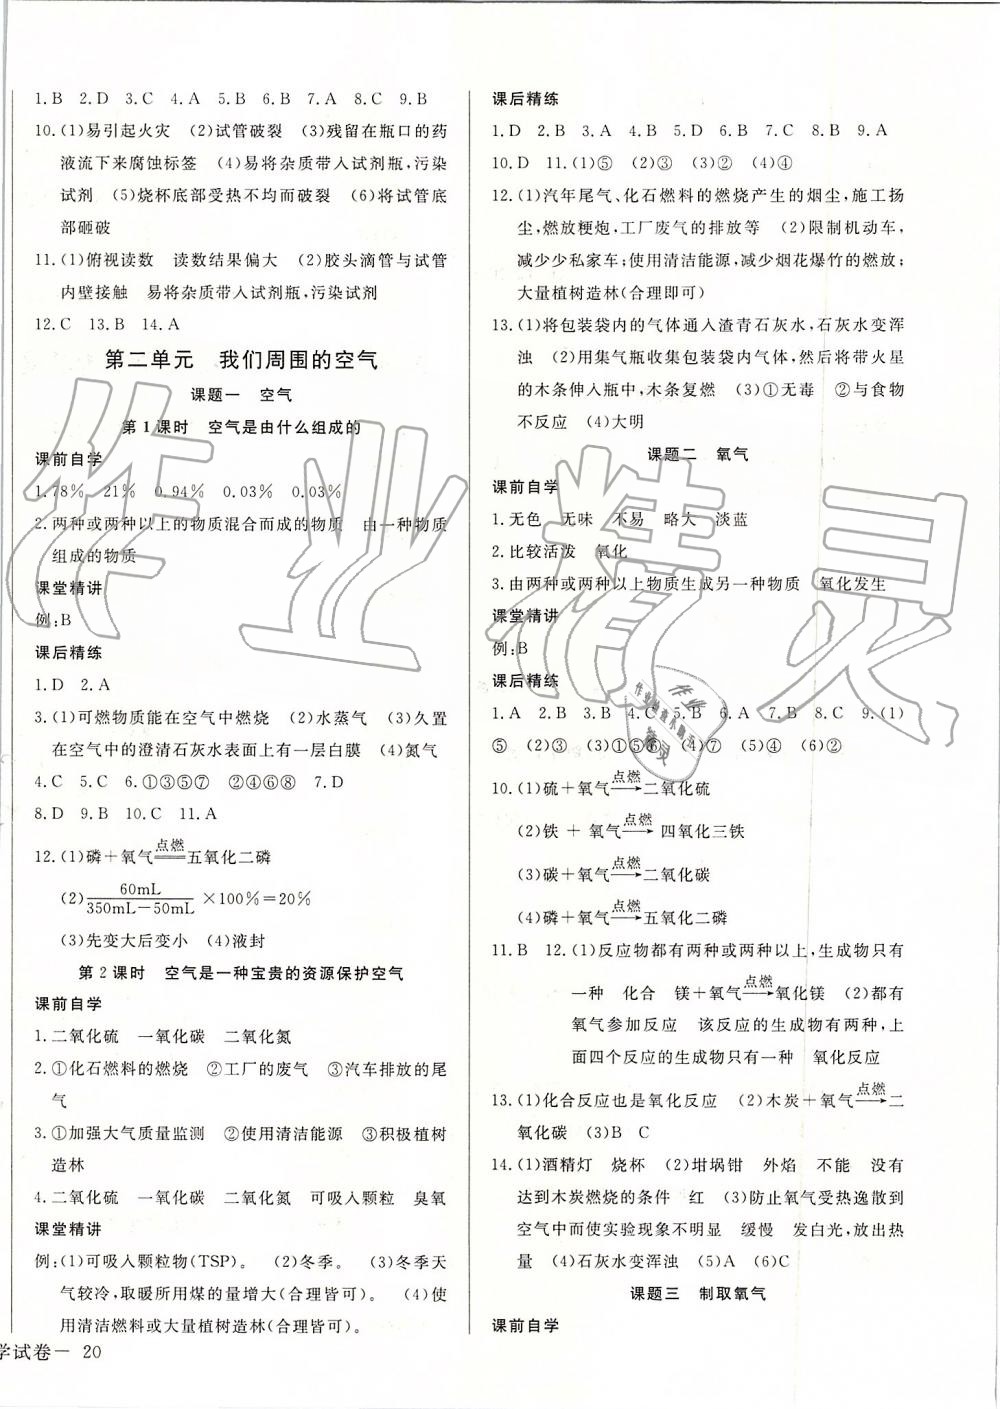 1.B 2.D 3.C 4.A 5.B 6.B 7.A 8.C 9.B
10.(1)易引起火灾 (2)试管破裂 (3)残留在瓶口的药
液流下来腐蚀标签 (4)易将杂质带入试剂瓶,污染
试剂 (5)烧杯底部受热不均而破裂 (6)将试管底
部砸破
11.(1)俯视读数 读数结果偏大 (2)胶头滴管与试管
内壁接触 易将杂质带入试剂瓶,污染试剂
12.C 13.B 14.A
第二单元 我们周围的空气
课题一 空气
第1课时 空气是由什么组成的
课前自学
1.78% 21% 0.94% 0.03% 0.03%
2.两种或两种以上的物质混合而成的物质 由一种物质
组成的物质
课堂精讲
例:B
课后精练
1.D 2.A
3.(1)可燃物质能在空气中燃烧 (2)水蒸气 (3)久置
在空气中的澄清石灰水表面上有一层白膜 (4)氮气
4.C 5.C 6.①③⑤⑦ ②④⑥⑧ 7.D
8.D 9.B 10.C 11.A
12.(1)磷+氧气 点燃 五氧化二磷
(2) 60mL / 350mL-50mL ×100%=20%
(3)先变大后变小 (4)液封
第2课时 空气是一种宝贵的资源保护空气
课前自学
1.二氧化硫 一氧化碳 二氧化氮
2.①化石燃料的燃烧 ②工厂的废气 ③汽车排放的尾
气
3.①加强大气质量监测 ②使用清洁能源 ③积极植树
造林
4.二氧化硫 一氧化碳 二氧化氮 可吸入颗粒 臭氧
课堂精讲
例:(1)可吸入颗粒物(TSP)。 (2)冬季。 (3)冬季天
气较冷,取暖所用煤的量增大(合理皆可)。 (4)使
用清洁燃料或大量植树造林(合理皆可)。
学试卷— 20
课后精练
1.D 2.B 3.A 4.B 5.D 6.B 7.C 8.B 9.A
10.D 11.(1)⑤ (2)③ (3)② (4)④
12.(1)汽年尾气、化石燃料的燃烧产生的烟尘,施工扬
尘,燃放梗炮,工厂废气的排放等 (2)限制机动车,
减少少私家车;使用清洁能源,减少烟花爆竹的燃放;
大量植树造林(合理即可)
13.(1)将包装袋内的气体通入渣青石灰水,石灰水变浑
浊 (2)用集气瓶收集包装袋内气体,然后将带火星
的木条伸入瓶中,木条复燃 (3)①无毒 ②与食物
不反应 (4)大明
课题二 氧气
课前自学
1.无色 无味 不易 略大 淡蓝
2.比较活泼 氧化
3.由两种或两种以上物质生成另一种物质 氧化发生
课堂精讲
例:B
课后精练
1.A 2.B 3.B 4.C 5.B 6.A 7.B 8.C 9.(1)
⑤ (2)③ (3)①⑤⑥ (4)⑦ (5)④ (6)②
10.(1)硫+氧气 点燃→ 二氧化硫
(2)铁 + 氧气 点燃→ 四氧化三铁
(3)碳+氧气 点燃→ 二氧化碳
(4)磷+氧气 点燃→ 五氧化二磷
11.B 12.(1)反应物都有两种或两种以上,生成物只有
一种 化合 镁+氧气 点燃→ 氧化镁 (2)都有
氧气参加反应 该反应的生成物有两种,上
面四个反应的生成物只有一种 氧化反应
13.(1)化合反应也是氧化反应 (2)木炭+氧气 点燃→ 二
氧化碳 (3)B C
14.(1)酒精灯 烧杯 (2)坩埚钳 外焰 不能 没有
达到木炭燃烧的条件 红 (3)防止氧气受热逸散到
空气中而使实验现象不明显 缓慢 发白光,放出热
量 (4)石灰水变浑浊 (5)A (6)C
课题三 制取氧气
课前自学
作业精灵